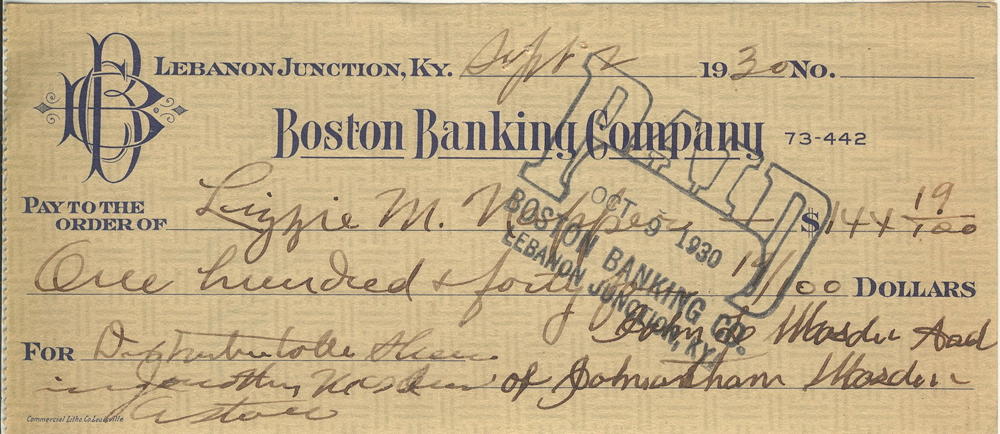 LEBANON JUNCTION, KY. Sept 2 1930 No.
BOSTON BANKING COMPANY 73-442
PAY TO THE ORDER OF Lizzie M. $144 19/100
One hundred & forty 19/100 DOLLARS
PAID
OCT 9 1930
BOSTON BANKING CO.
LEBANON JUNCTION, KY.
John Masden Aad
FOR Distributable Share
in of Johnathan Masden
Commercial Litho. Co. Louisville